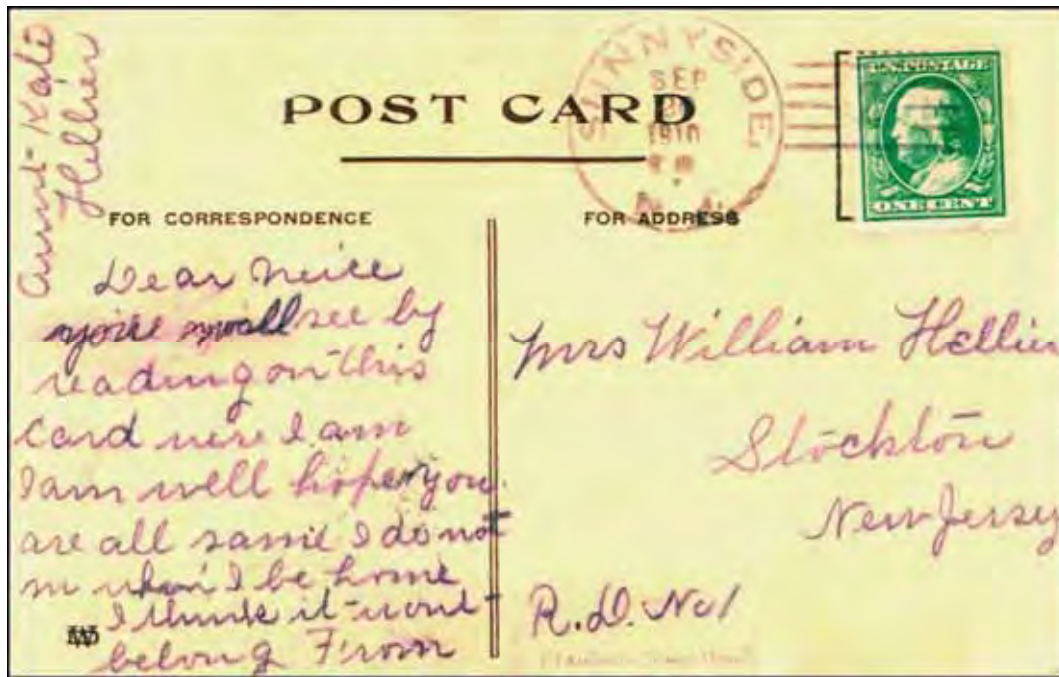 Aunt Kate
Hellier
POST CARD
SUNNYSIDE
SEP
1910
U.S. POSTAGE
ONE CENT
FOR CORRESPONDENCE
FOR ADDRESS
Dear Neice
see by
reading on this
Card were I am
I am well hope you
are all same I do not
when I be home
I think it wont
belong From
Mrs William Hellier
Stockton
New Jersey
R.D. No 1